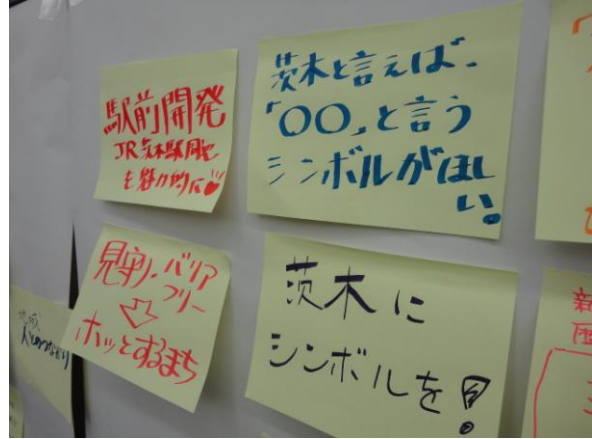 駅前開発
JR茨木駅周辺
も魅力的に
茨木と言えば、
「〇〇」と言う
シンボルがほし
い。
見守り、バリア
フリー
ホッとするまち
茨木に
シンボルを!
人とのつながり
新